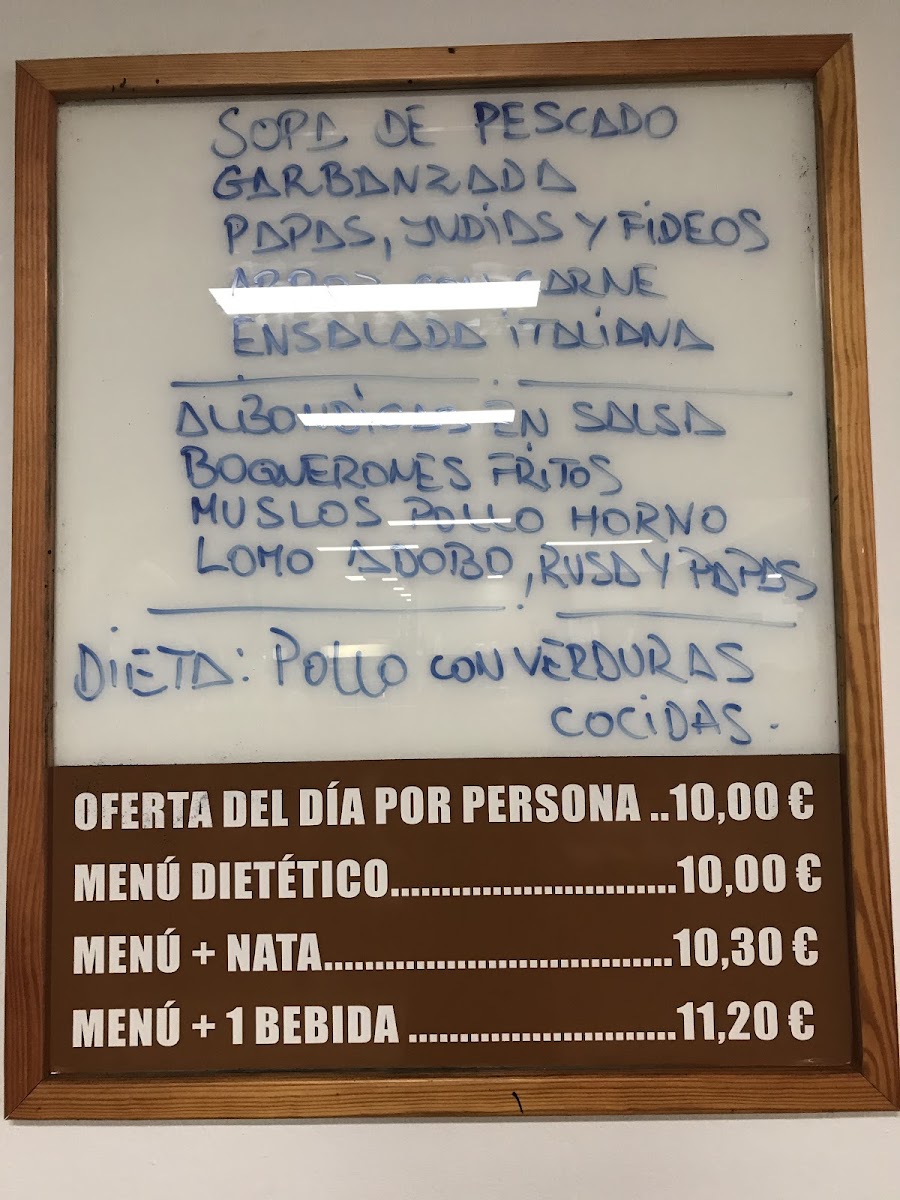 SOPA DE PESCADO
GARBANZADA
PAPAS, JUDIAS Y FIDEOS
ARROZ CON CARNE
ENSALADA ITALIANA
ALBONDIGAS EN SALSA
BOQUERONES FRITOS
MUSLOS POLLO HORNO
LOMO ADOBO, RUSA Y PAPAS
DIETA: POLLO CON VERDURAS
COCIDAS.
OFERTA DEL DÍA POR PERSONA ..10,00 €
MENÚ DIETÉTICO............................10,00 €
MENÚ + NATA..................................10,30 €
MENÚ + 1 BEBIDA ..........................11,20 €